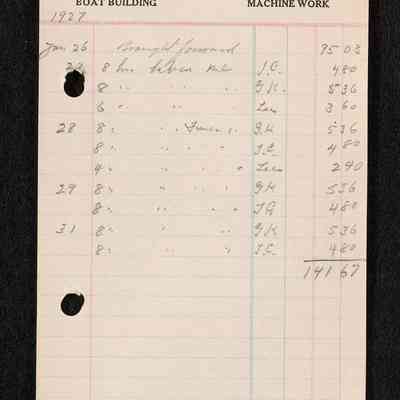 BOAT BUILDING MACHINE WORK
1927
Jan 26 Brought forward 95 03
8 hrs labor J.C. 4 80
8 " " " " G.K. 5 36
6 " " " Les 3 60
28 8 " " " G.K 5 36
8 " " " " J.C. 4 80
4 " " " " Les 2 40
29 8 " " " " G.K 5 36
8 " " " J.C 4 80
31 8 " " " G.K 5 36
8 " " " J.C. 4 80
141 67